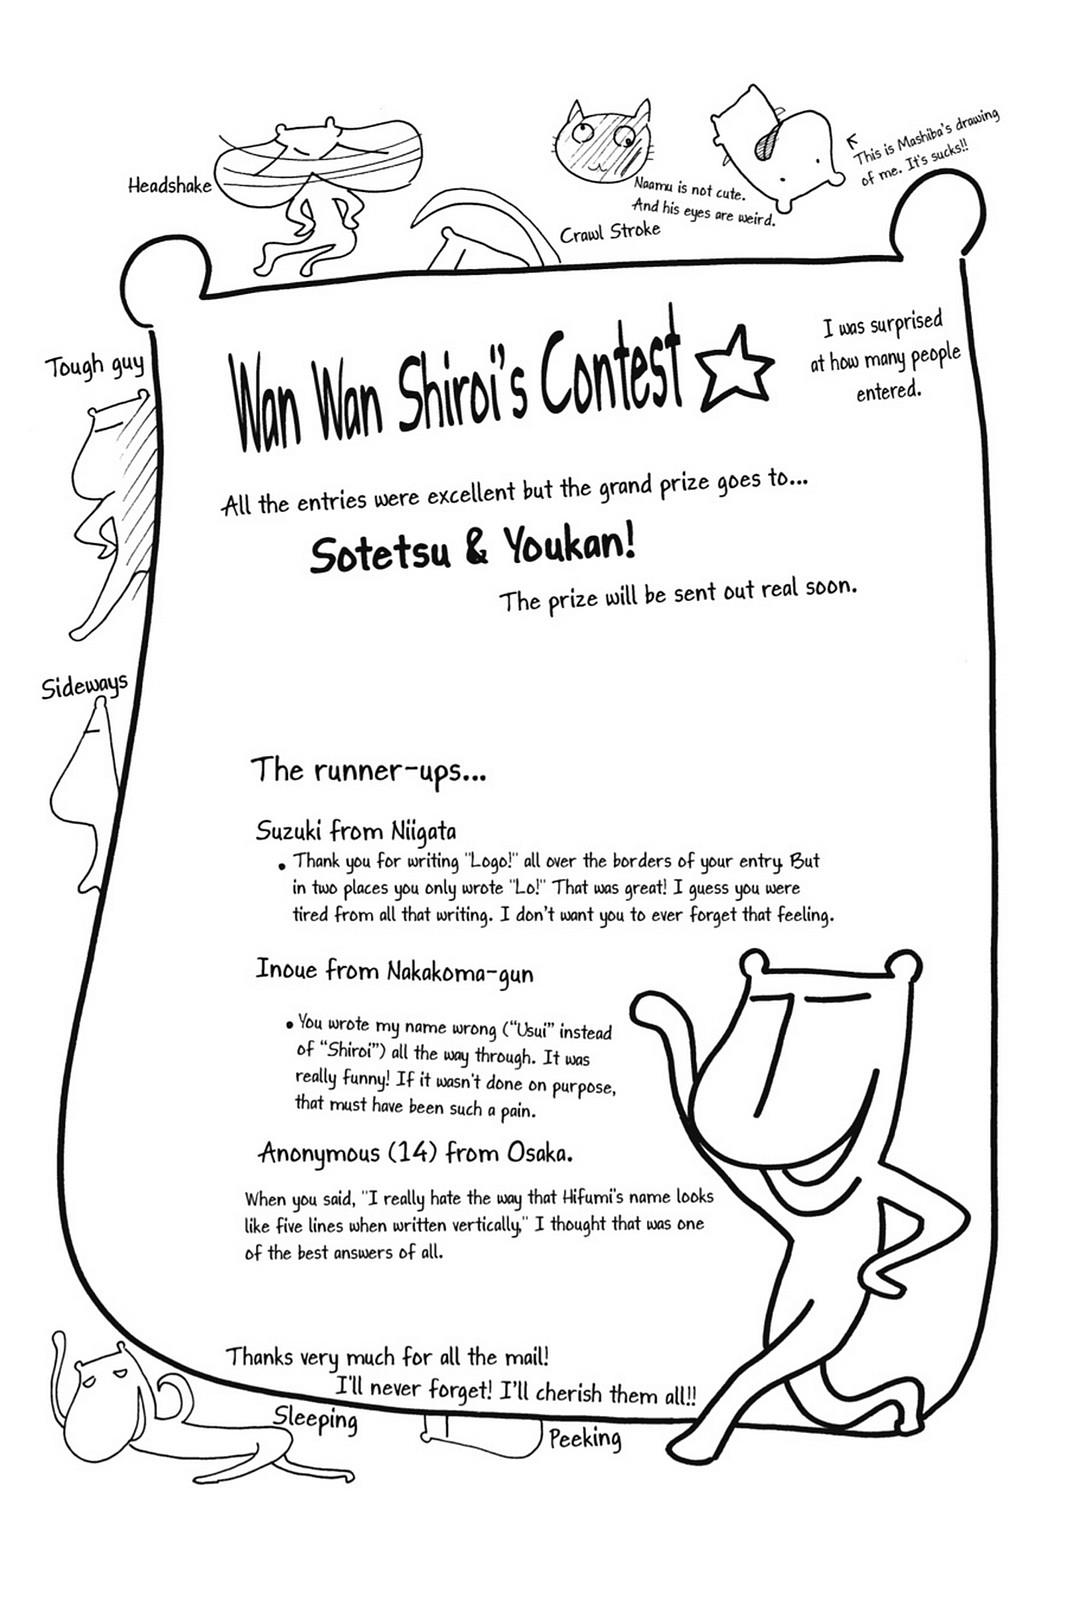 This is Mashiba's drawing
of me. It's sucks!!
Headshake
Naamu is not cute.
And his eyes are weird.
Crawl Stroke
Wan Wan Shiroi's Contest
I was surprised
at how many people
entered.
Tough guy
All the entries were excellent but the grand prize goes to...
Sotetsu & Youkan!
The prize will be sent out real soon.
Sideways
The runner-ups...
Suzuki from Niigata
• Thank you for writing "Logo!" all over the borders of your entry. But
in two places you only wrote "Lo!" That was great! I guess you were
tired from all that writing. I don't want you to ever forget that feeling.
Inoue from Nakakoma-gun
• You wrote my name wrong ("Usui" instead
of "Shiroi") all the way through. It was
really funny! If it wasn't done on purpose,
that must have been such a pain.
Anonymous (14) from Osaka.
When you said, "I really hate the way that Hifumi's name looks
like five lines when written vertically," I thought that was one
of the best answers of all.
Thanks very much for all the mail!
I'll never forget! I'll cherish them all!!
Sleeping
Peeking